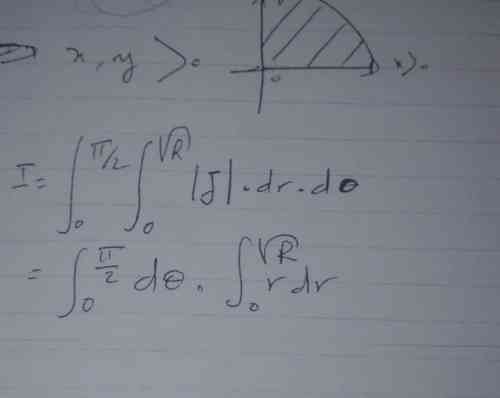 ⇒ x, y > 0
0 x>0
I = ∫₀^{π/2} ∫₀^{√R} |J| · dr · dθ
= ∫₀^{π/2} dθ · ∫₀^{√R} r dr